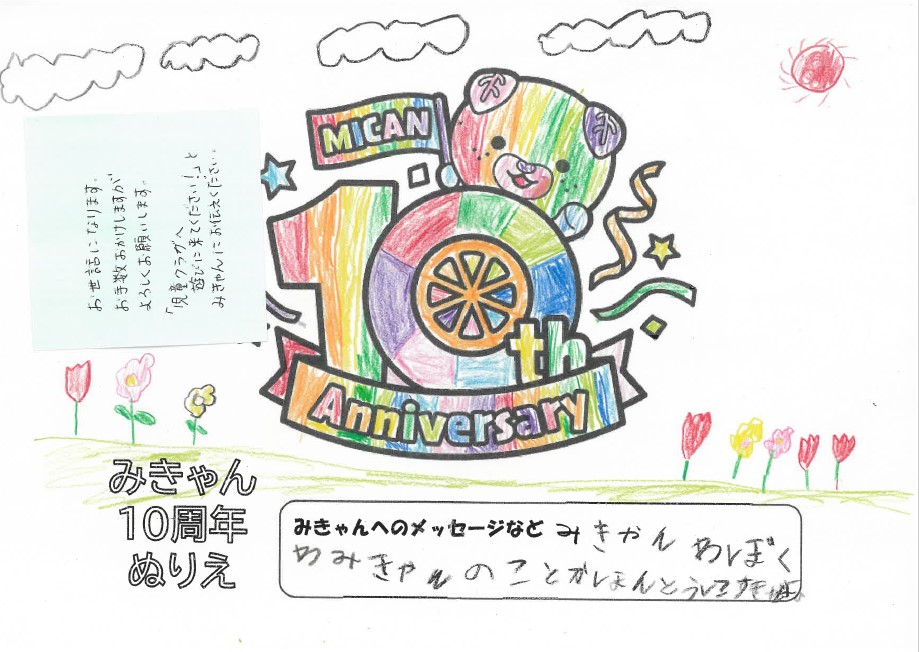 MICAN
10th
Anniversary
お世話になります。
お手数おかけしますが
よろしくお願いします。
「児童クラブへ
遊びに来てください!」と
みきゃんにお伝えください
みきゃん
10周年
ぬりえ
みきゃんへのメッセージなど みきゃん
みきゃんのことがほんとうにすき